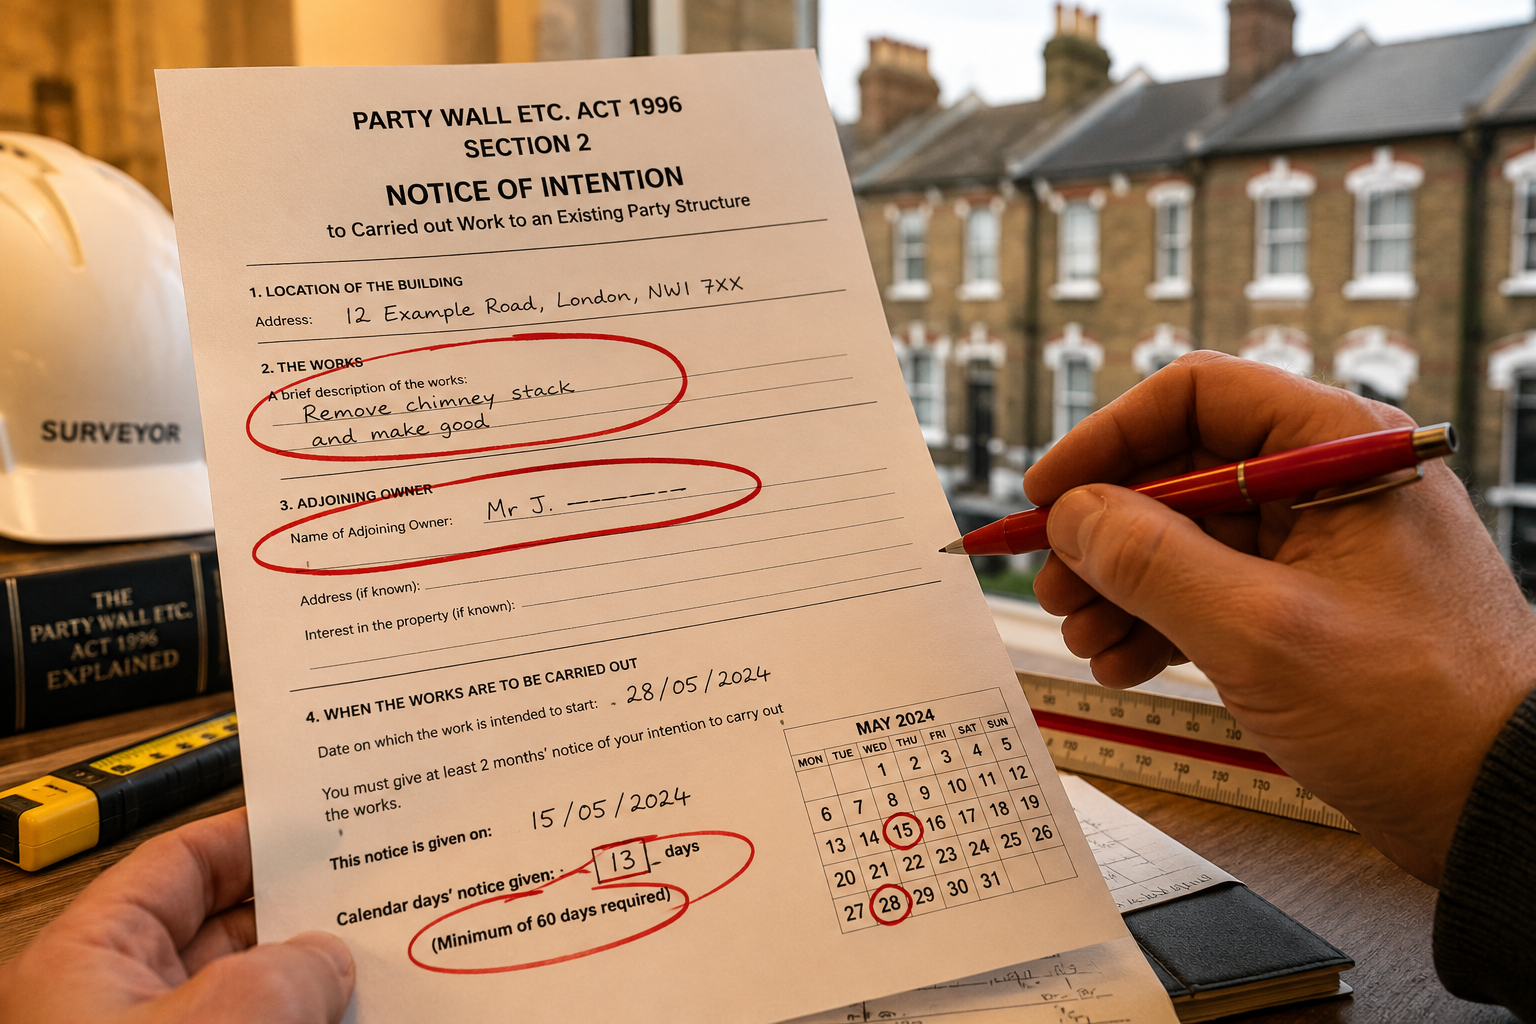 PARTY WALL ETC. ACT 1996
SECTION 2
NOTICE OF INTENTION
to Carried out Work to an Existing Party Structure
1. LOCATION OF THE BUILDING
Address: 12 Example Road, London, NW1 7XX
2. THE WORKS
A brief description of the works:
Remove chimney stack
and make good
3. ADJOINING OWNER
Name of Adjoining Owner: Mr J.
Address (if known):
Interest in the property (if known):
4. WHEN THE WORKS ARE TO BE CARRIED OUT
Date on which the work is intended to start: 28/05/2024
You must give at least 2 months' notice of your intention to carry out
the works.
This notice is given on: 15/05/2024
Calendar days' notice given: 13 days
(Minimum of 60 days required)
MAY 2024
MON TUE WED THU FRI SAT SUN
1 2 3 4 5
6 7 8 9 10 11 12
13 14 15 16 17 18 19
20 21 22 23 24 25 26
27 28 29 30 31
SURVEYOR
THE
PARTY WALL ETC.
ACT 1996
EXPLAINED